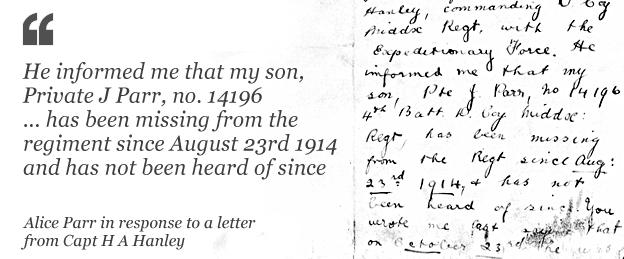 He informed me that my son,
Private J Parr, no. 14196
... has been missing from the
regiment since August 23rd 1914
and has not been heard of since
Alice Parr in response to a letter
from Capt H A Hanley
Hanley, commanding D Coy
Middx Regt, with the
Expeditionary Force. He
informed me that my
son, Pte J. Parr, no 14196
4th Batt. D. Coy Middx:
Regt, has been missing
from the Regt since Aug:
23rd 1914, & has not
been heard of since. You
wrote me that
on October 23rd the